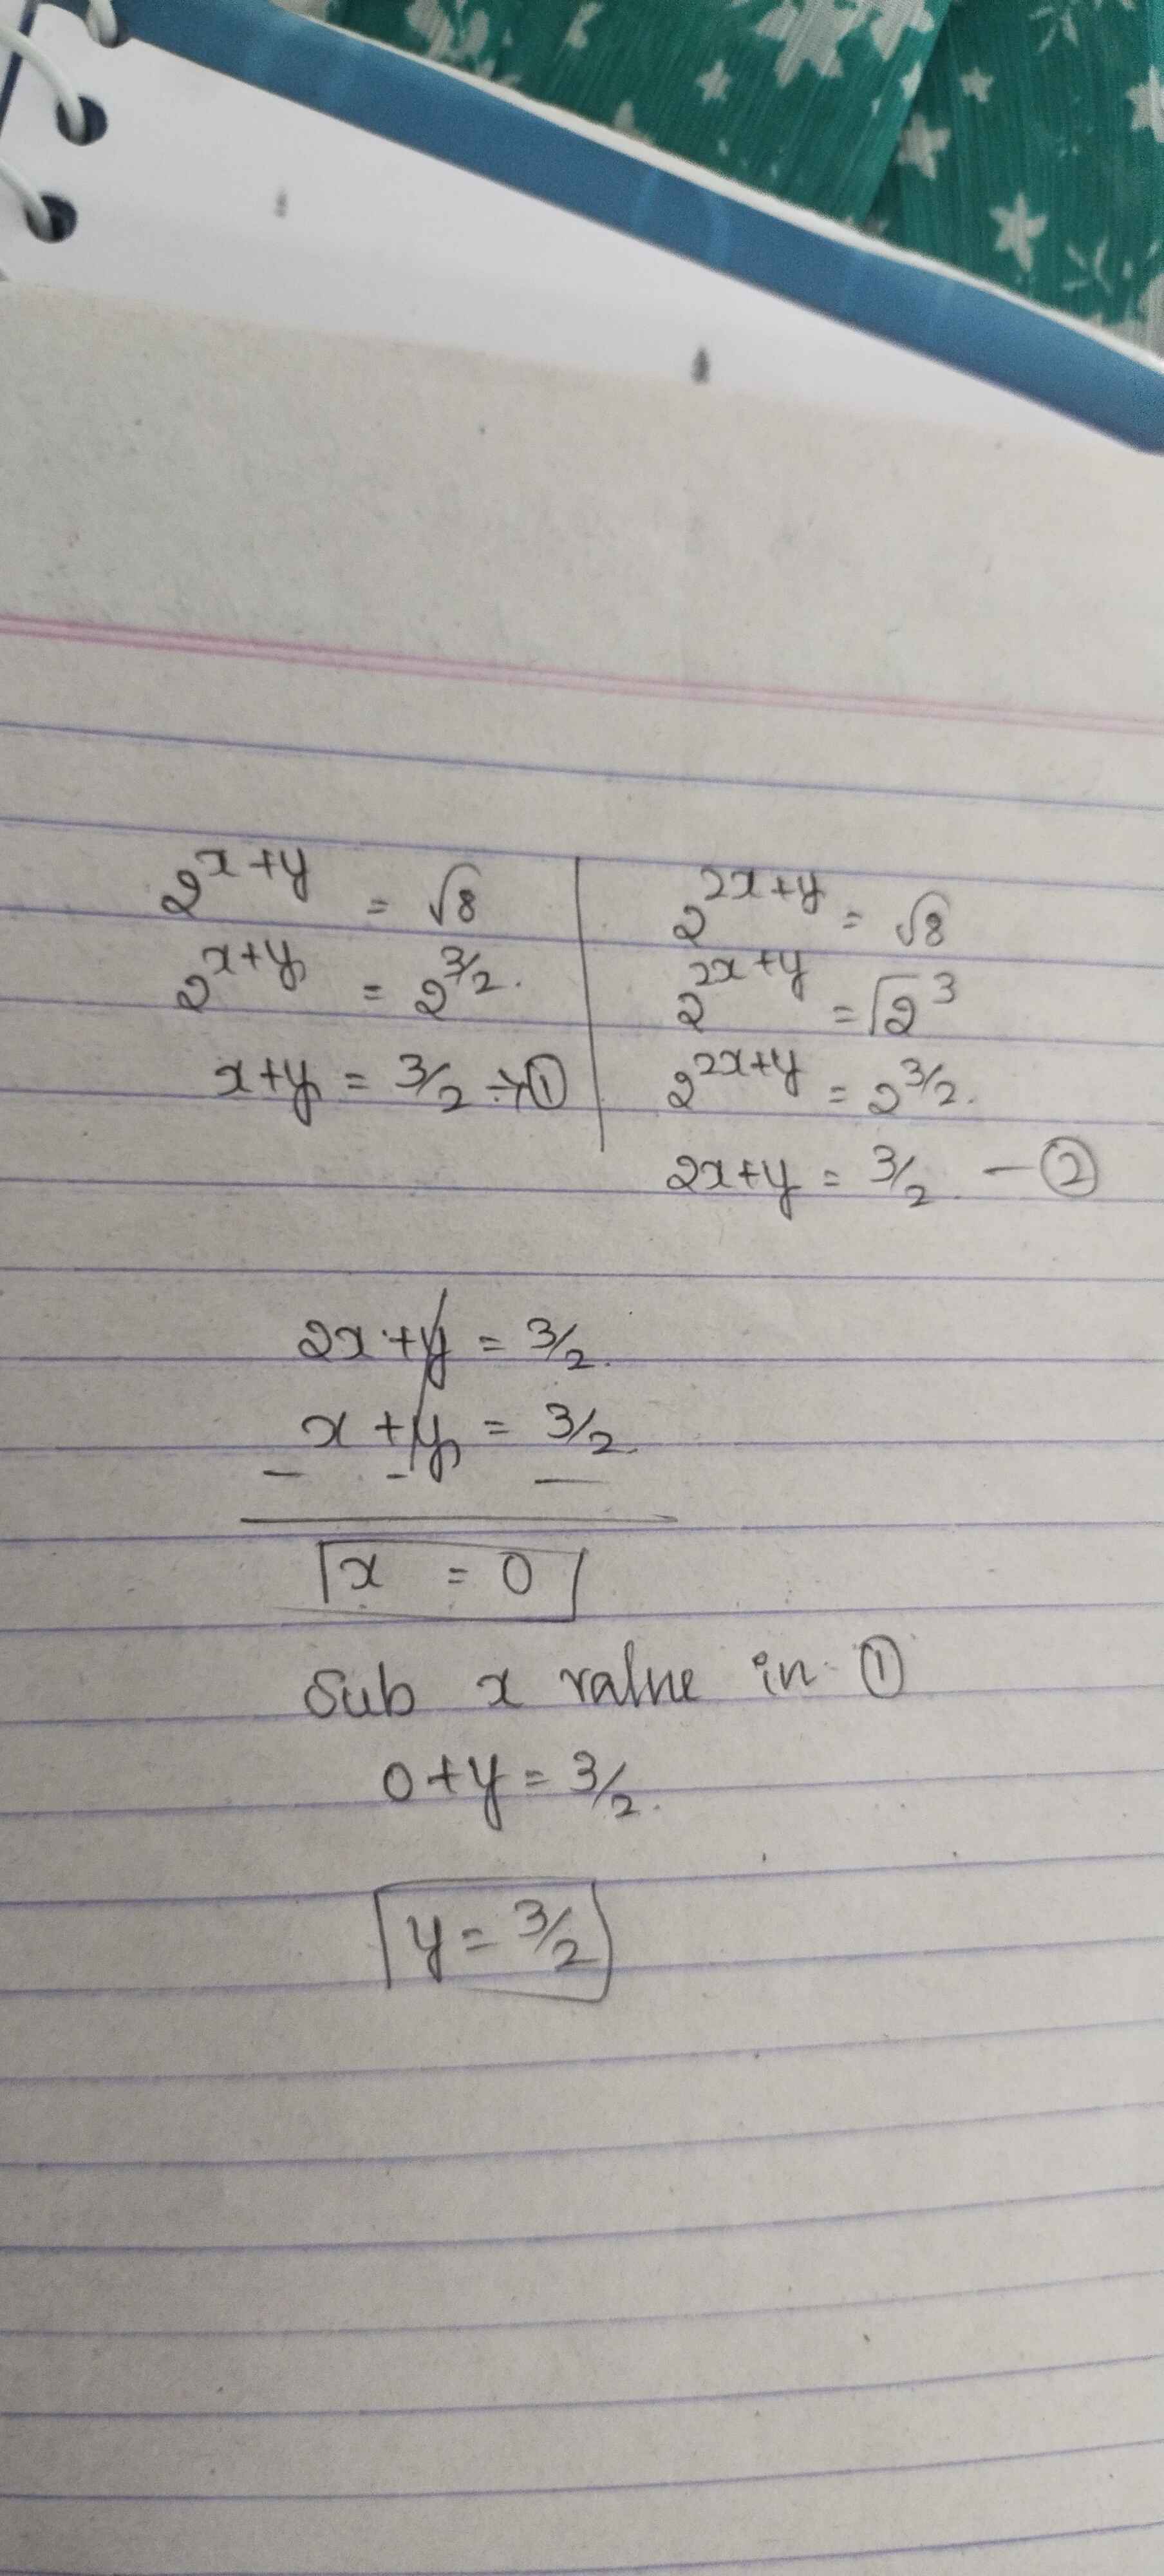 2^(x+y) = √8
2^(x+y) = 2^(3/2).
x+y = 3/2 → ①
2^(2x+y) = √8
2^(2x+y) = √2^3
2^(2x+y) = 2^(3/2).
2x+y = 3/2 — ②
2x+y = 3/2.
x+y = 3/2.
— - —
x = 0
Sub x value in ①
0+y = 3/2.
y = 3/2